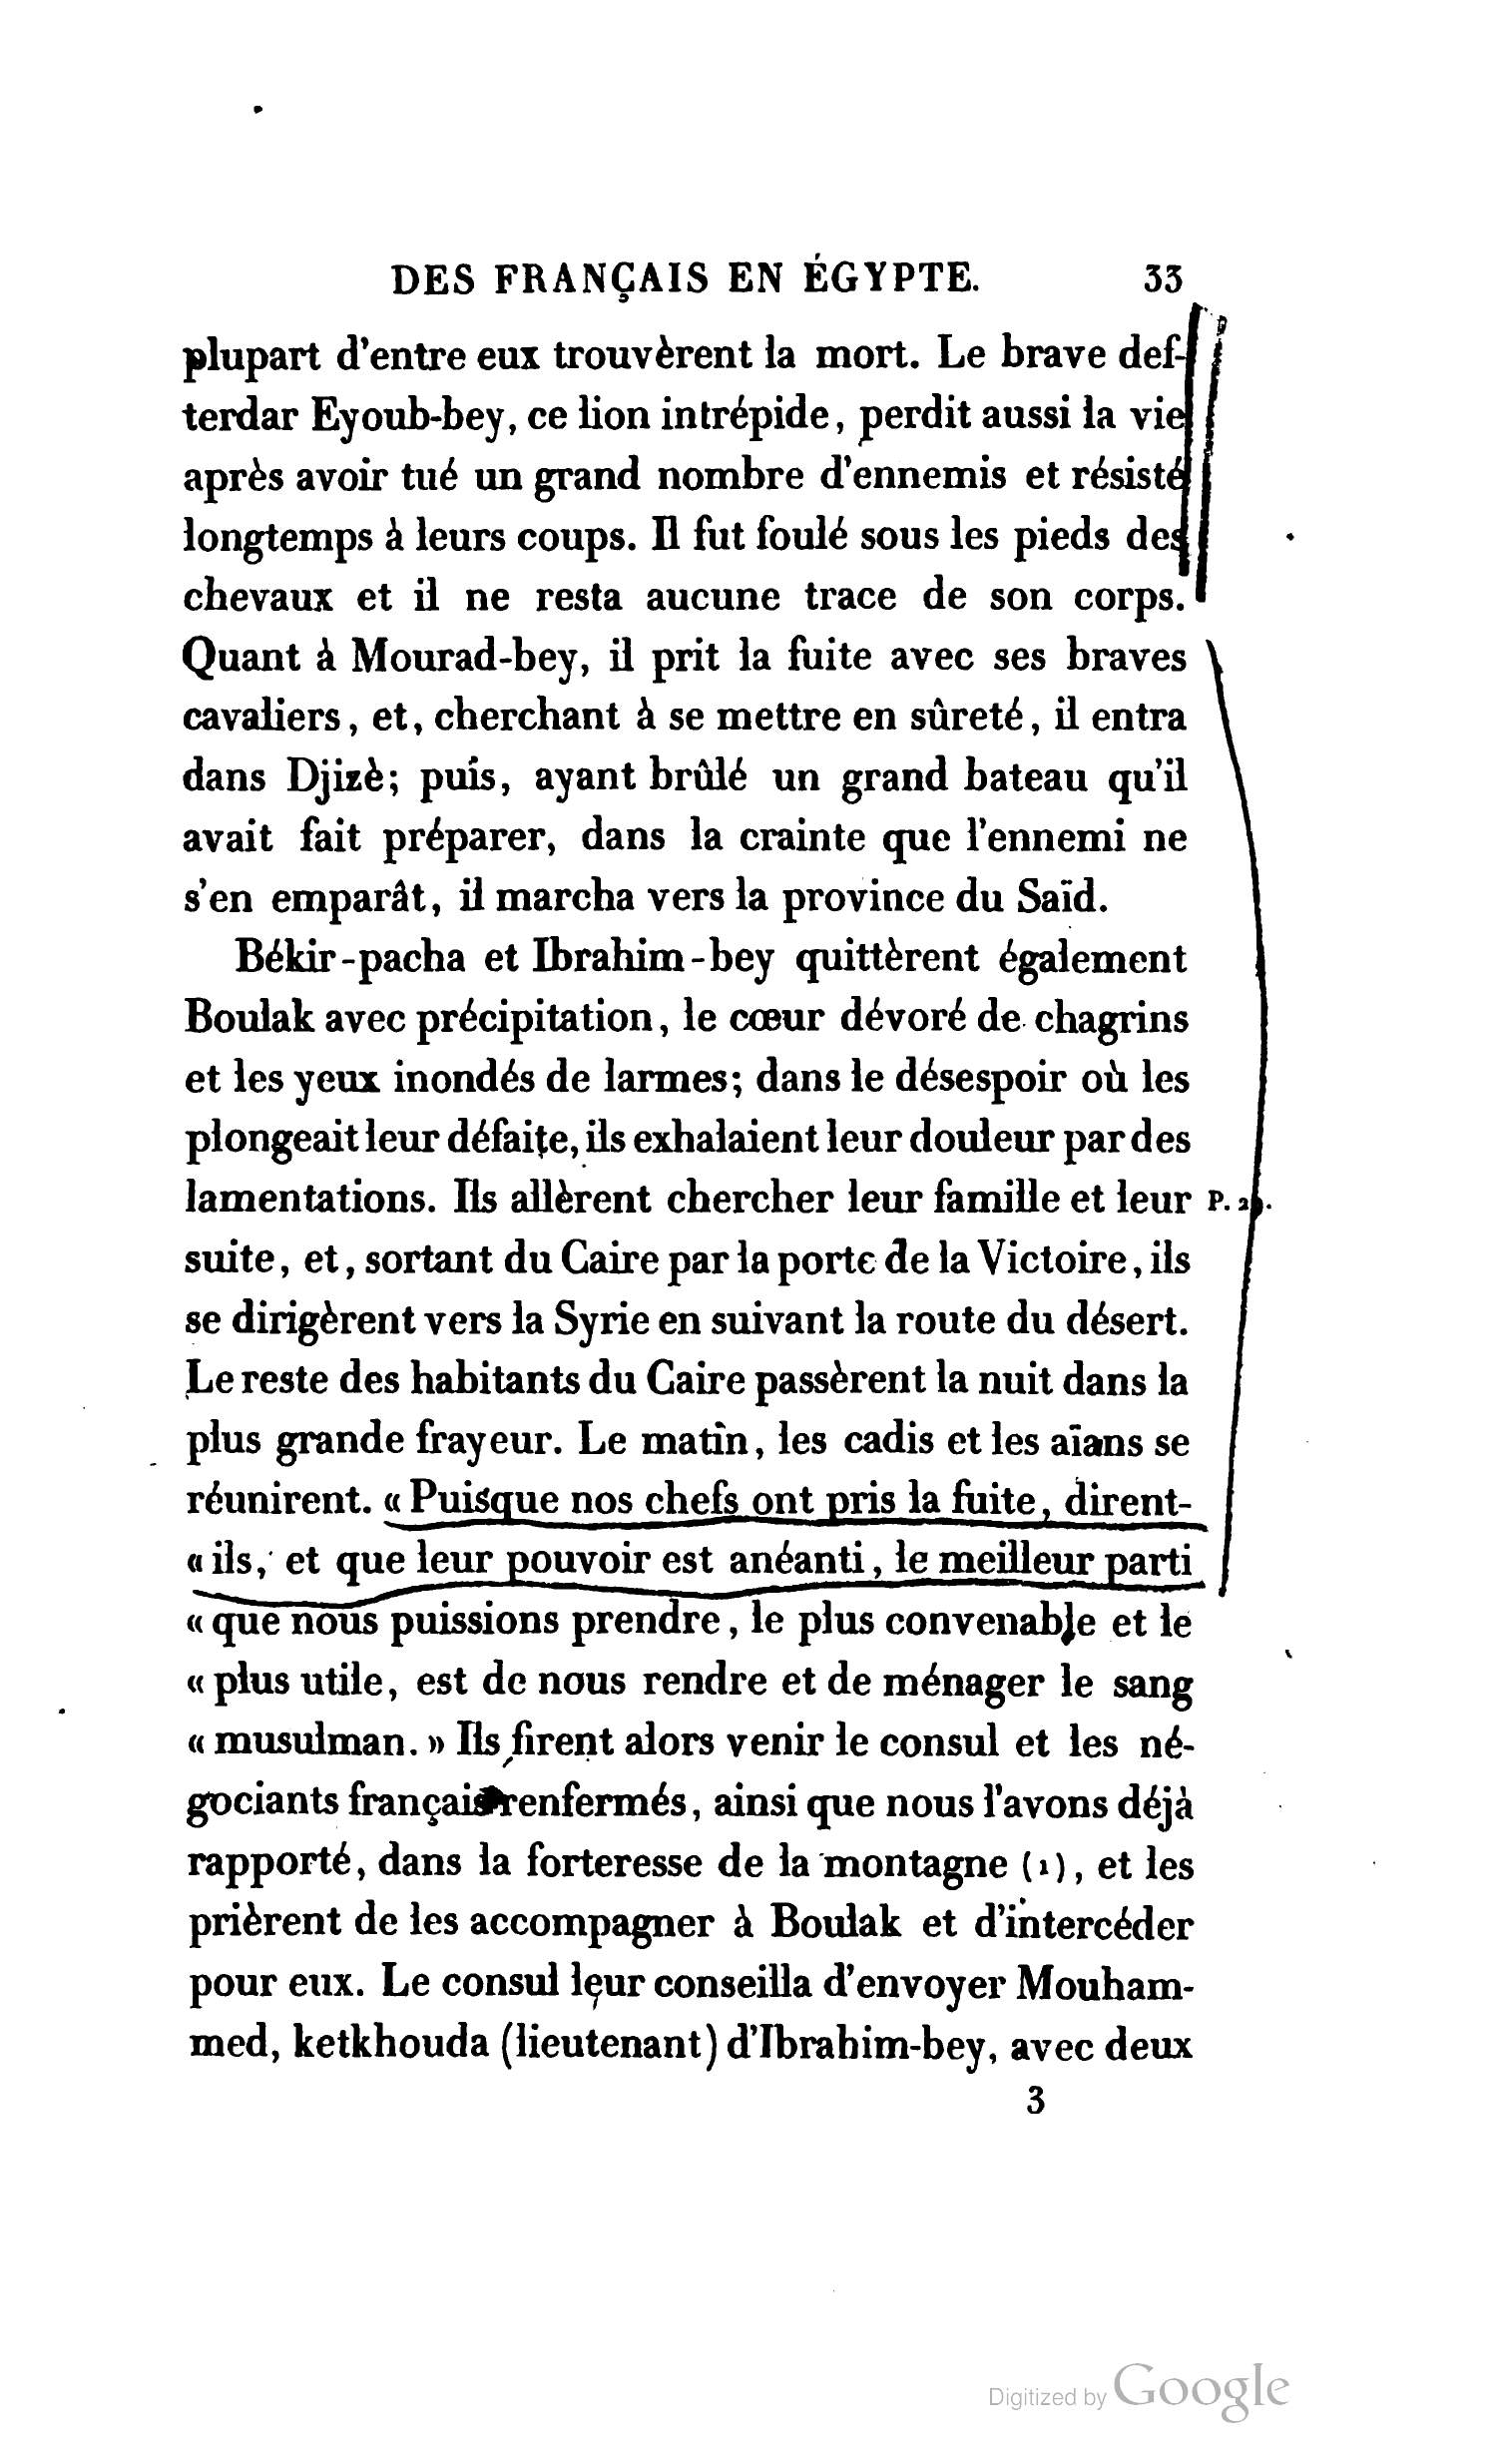 DES FRANÇAIS EN ÉGYPTE. 33
plupart d'entre eux trouvèrent la mort. Le brave def-
terdar Eyoub-bey, ce lion intrépide, perdit aussi la vie
après avoir tué un grand nombre d'ennemis et résisté
longtemps à leurs coups. Il fut foulé sous les pieds des
chevaux et il ne resta aucune trace de son corps.
Quant à Mourad-bey, il prit la fuite avec ses braves
cavaliers, et, cherchant à se mettre en sûreté, il entra
dans Djizè; puis, ayant brûlé un grand bateau qu'il
avait fait préparer, dans la crainte que l'ennemi ne
s'en emparât, il marcha vers la province du Saïd.
Békir-pacha et Ibrahim-bey quittèrent également
Boulak avec précipitation, le cœur dévoré de chagrins
et les yeux inondés de larmes; dans le désespoir où les
plongeait leur défaite, ils exhalaient leur douleur par des
lamentations. Ils allèrent chercher leur famille et leur P.
suite, et, sortant du Caire par la porte de la Victoire, ils
se dirigèrent vers la Syrie en suivant la route du désert.
Le reste des habitants du Caire passèrent la nuit dans la
plus grande frayeur. Le matin, les cadis et les aïans se
réunirent. « Puisque nos chefs ont pris la fuite, dirent-
« ils, et que leur pouvoir est anéanti, le meilleur parti
« que nous puissions prendre, le plus convenable et le
« plus utile, est de nous rendre et de ménager le sang
« musulman. » Ils firent alors venir le consul et les né-
gociants français renfermés, ainsi que nous l'avons déjà
rapporté, dans la forteresse de la montagne (1), et les
prièrent de les accompagner à Boulak et d'intercéder
pour eux. Le consul leur conseilla d'envoyer Mouham-
med, ketkhouda (lieutenant) d'Ibrahim-bey, avec deux
3
Digitized by Google